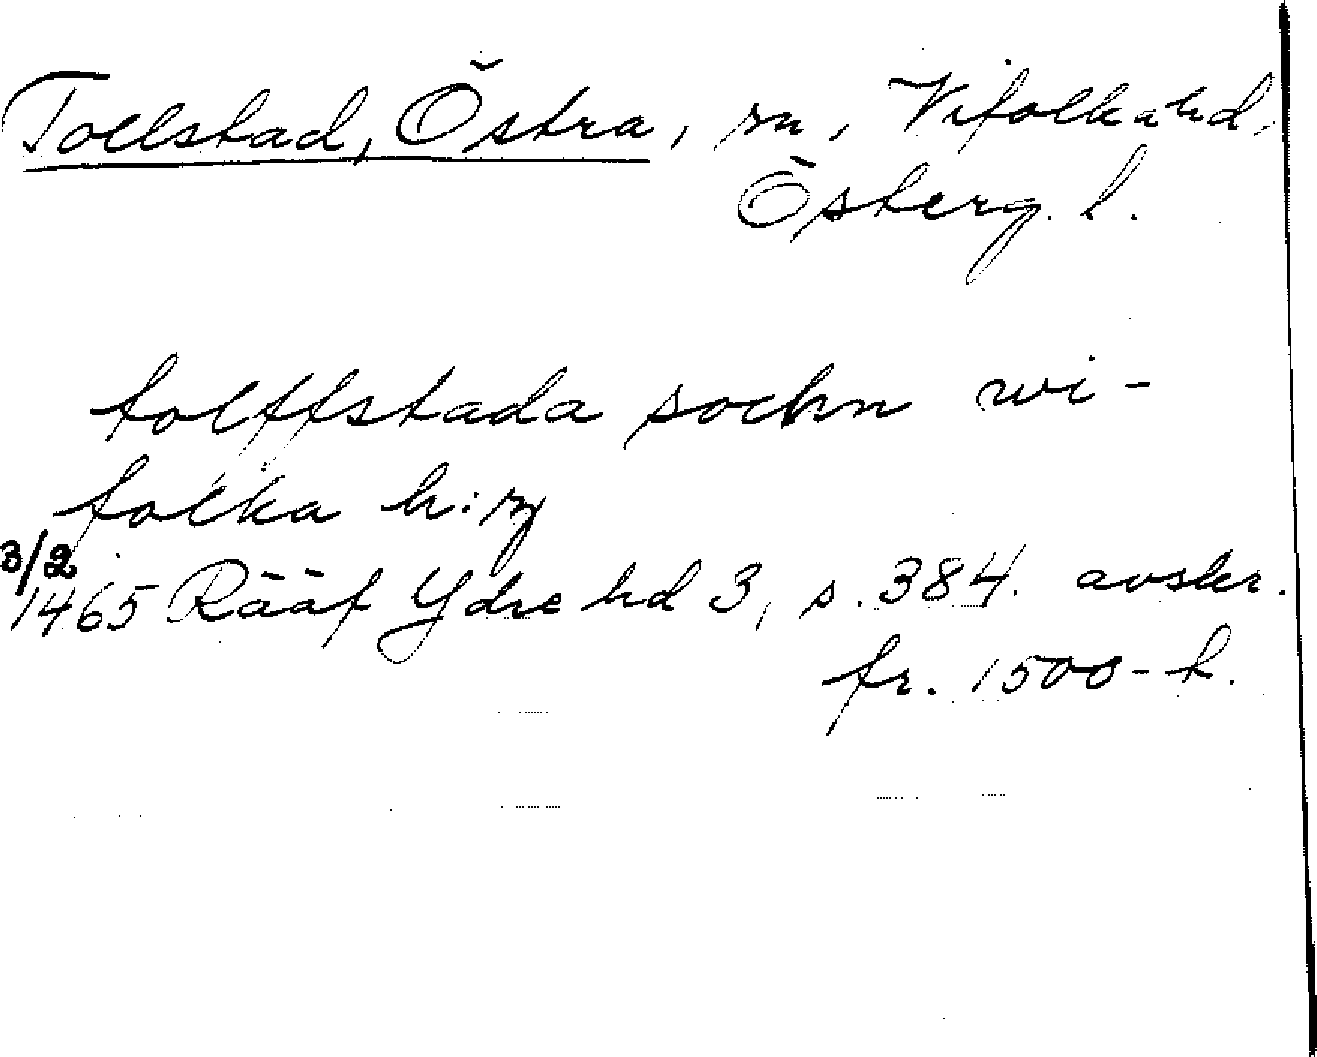 Tollstad, Östra, sn, Vifolka hd,
Österg. l.
tolffstada sochn wi-
folka h:z
3/2
1465 Rääf Ydre hd 3, s. 384. avskr.
fr. 1500-t.